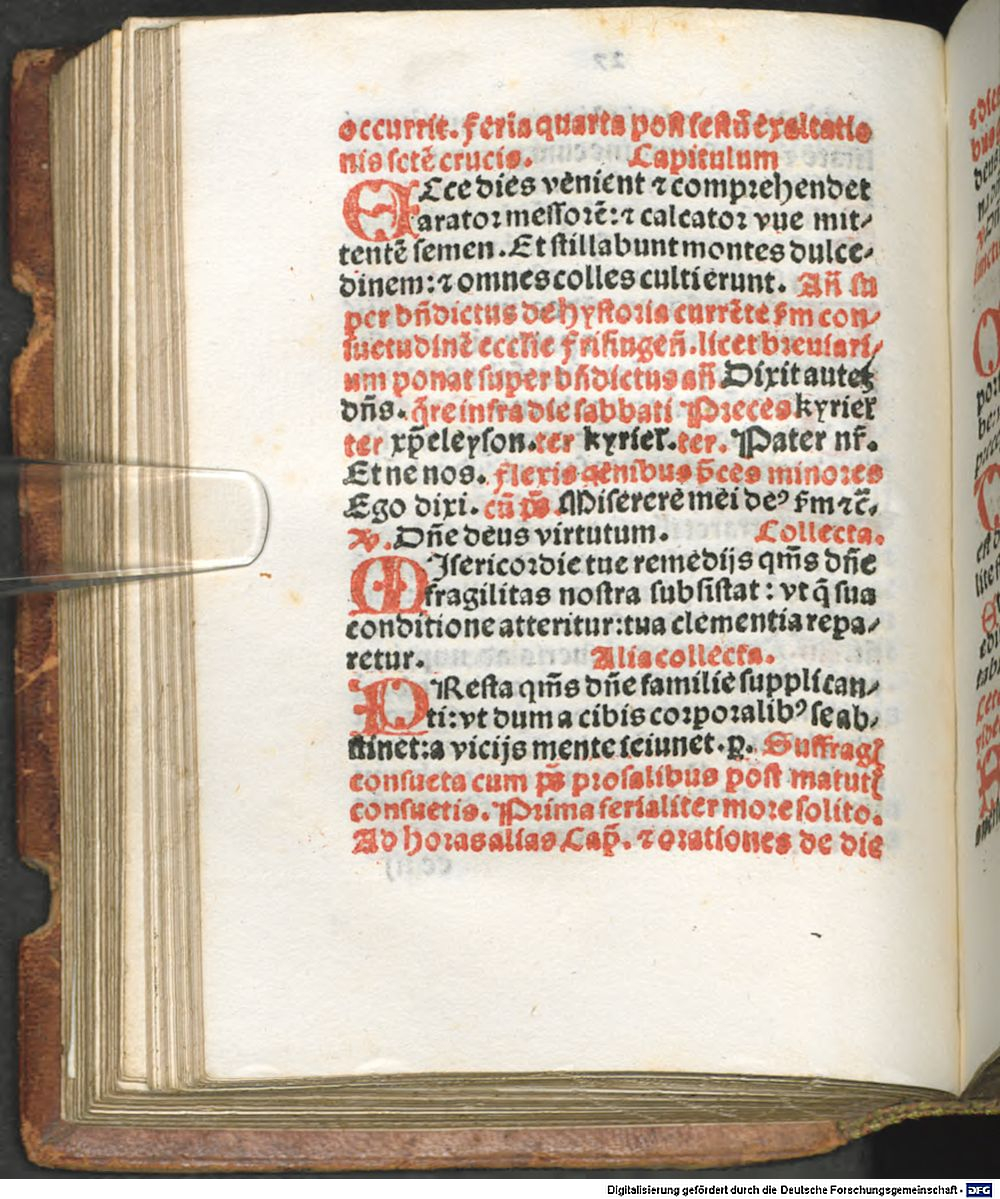 occurrit. feria quarta post festū exaltatio
nis sctē crucis. Capitulum
ECce dies venient ⁊ comprehendet
arator messorē: ⁊ calcator vue mit⸗
tentē semen. Et stillabunt montes dulce⸗
dinem: ⁊ omnes colles culti erunt. Añ su
per bñdictus de hystoria currēte ẜm con⸗
suetudinē ecclie frisingeñ. licet breuiari⸗
um ponat super bñdictus añ Dixit autez
dñs. q̄re infra die sabbati Preces kyriel̛
ter xp̄eleyson. ter kyriel̛. ter. Pater nr̄.
Et ne nos. flexis genibus p̄ces minores
Ego dixi. cū p̄s. Miserere mei deꝰ ẜm ⁊c̄.
℣. Dñe deus virtutum. Collecta.
MIsericordie tue remedijs qm̄s dñe
fragilitas nostra subsistat: vt q̄ sua
conditione atteritur: tua clementia repa⸗
retur. Alia collecta.
PResta qm̄s dñe familie supplican⸗
ti: vt dum a cibis corporalibꝰ se ab⸗
stinet: a vicijs mente ieiunet. p. Suffragl̛
consueta cum p̄s prosalibus post matuti
consuetis. Prima ferialiter more solito.
Ad horas alias Cap̄. ⁊ orationes de die
Digitalisierung gefördert durch die Deutsche Forschungsgemeinschaft - DFG